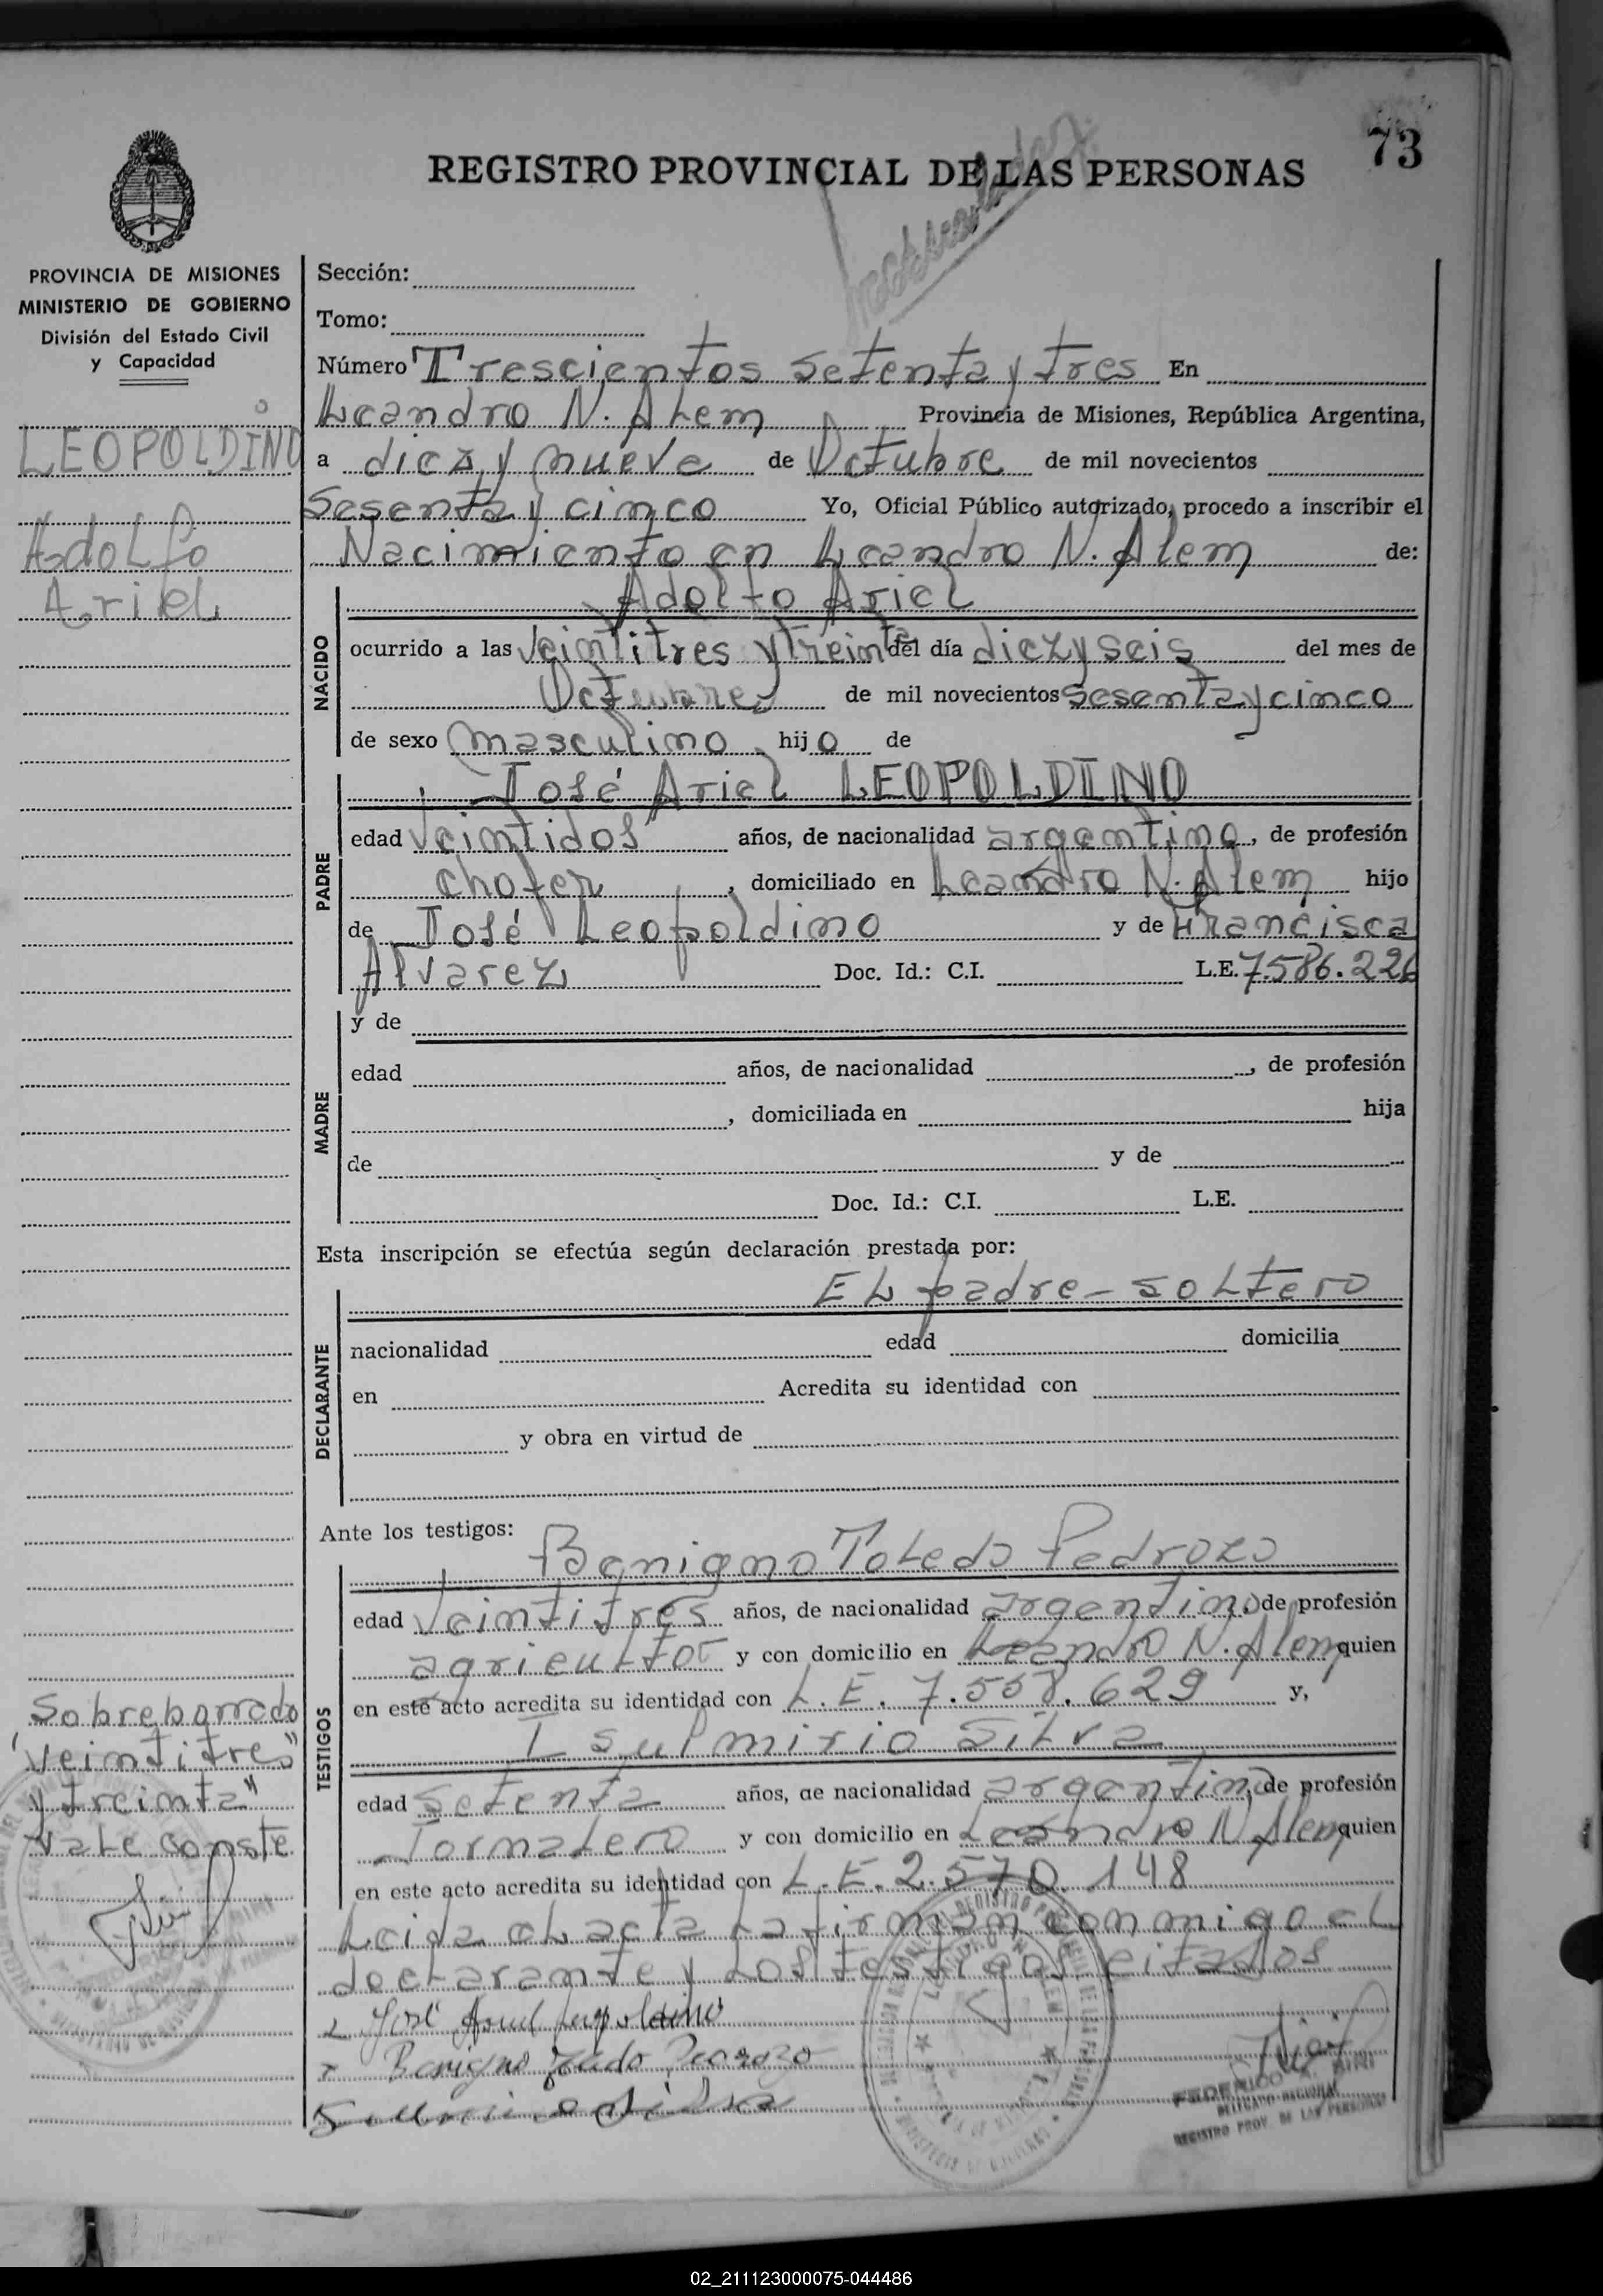 73
REGISTRO PROVINCIAL DE LAS PERSONAS
PROVINCIA DE MISIONES
MINISTERIO DE GOBIERNO
División del Estado Civil
y Capacidad
LEOPOLDINO
Adolfo
Ariel
Sección:
Tomo:
Número Trescientos setenta y tres En
Leandro N. Alem Provincia de Misiones, República Argentina,
a diez y nueve de Octubre de mil novecientos
Sesenta y cinco Yo, Oficial Público autorizado, procedo a inscribir el
Nacimiento en Leandro N. Alem de:
NACIDO
Adolfo Ariel
ocurrido a las veintitres y treinta del día diez y seis del mes de
Octubre de mil novecientos sesenta y cinco
de sexo masculino, hijo de
PADRE
José Ariel LEOPOLDINO
edad veintidos años, de nacionalidad argentino, de profesión
chofer, domiciliado en Leandro N. Alem hijo
de José Leopoldino y de Francisca
Alvarez Doc. Id.: C.I. L.E. 7.586.226
MADRE
y de
edad años, de nacionalidad , de profesión
, domiciliada en hija
de y de
Doc. Id.: C.I. L.E.
Esta inscripción se efectúa según declaración prestada por:
DECLARANTE
El padre - soltero
nacionalidad edad domicilia
en Acredita su identidad con
y obra en virtud de
Ante los testigos:
TESTIGOS
Benigno Toledo Pedrozo
edad veintitres años, de nacionalidad argentino de profesión
agricultor y con domicilio en Leandro N. Alem quien
en este acto acredita su identidad con L.E. 7.558.629 y,
Isulmirio Silva
edad setenta años, de nacionalidad argentino, de profesión
Jornalero y con domicilio en Leandro N. Alem quien
en este acto acredita su identidad con L.E. 2.570.148
Leida el acta la firman conmigo el
declarante y los testigos citados
José Ariel Leopoldino
Benigno Toledo Pedrozo
Silva
Sobreborrado
"veintitres
y treinta"
Vale conste
FEDERICO
DELEGADO REGIONAL
REGISTRO PROV. DE LAS PERSONAS
02_211123000075-044486